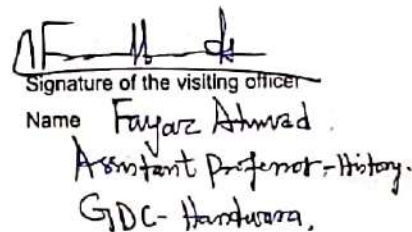 Signature of the visiting officer
Name Fayaz Ahmad.
Assistant Professor-History.
GDC-Handwara.